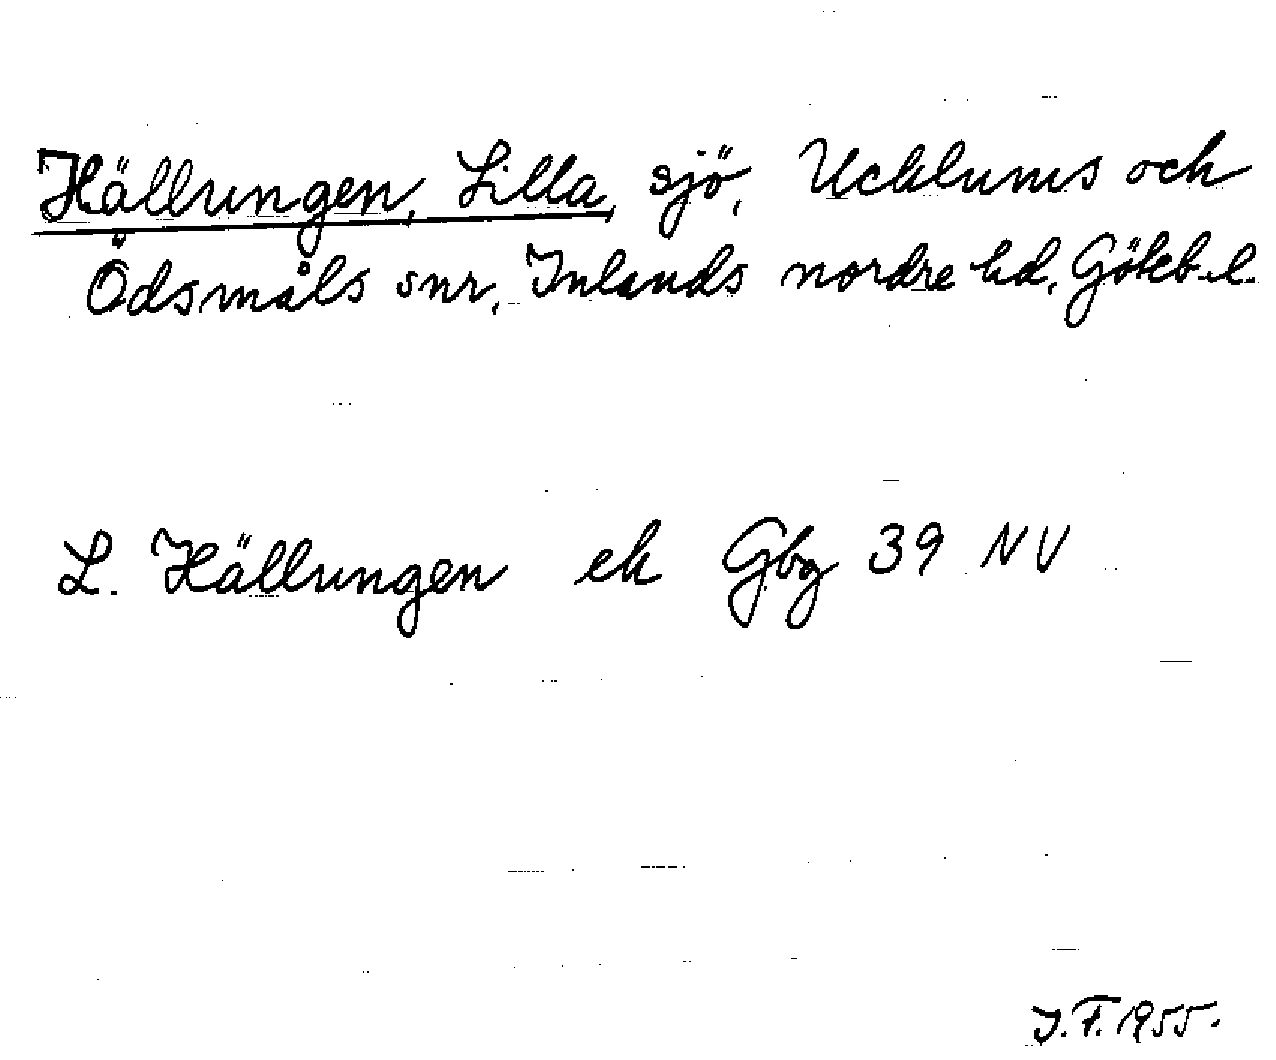 Hällungen, Lilla, sjö, Ucklums och
Ödsmåls snr, Inlands nordre hd, Götcb.l.
L. Hällungen ek Gbg 39 NV
J.F. 1955.